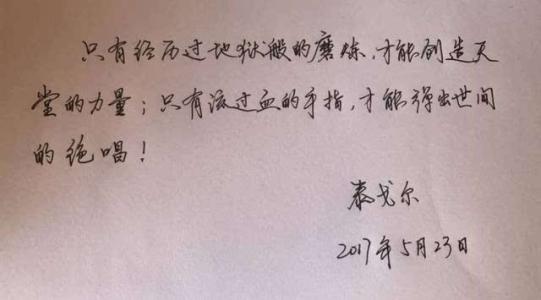 只有经历过地狱般的磨炼,才能创造天
堂的力量；只有流过血的手指,才能弹出世间
的绝唱！
泰戈尔
2017年5月23日